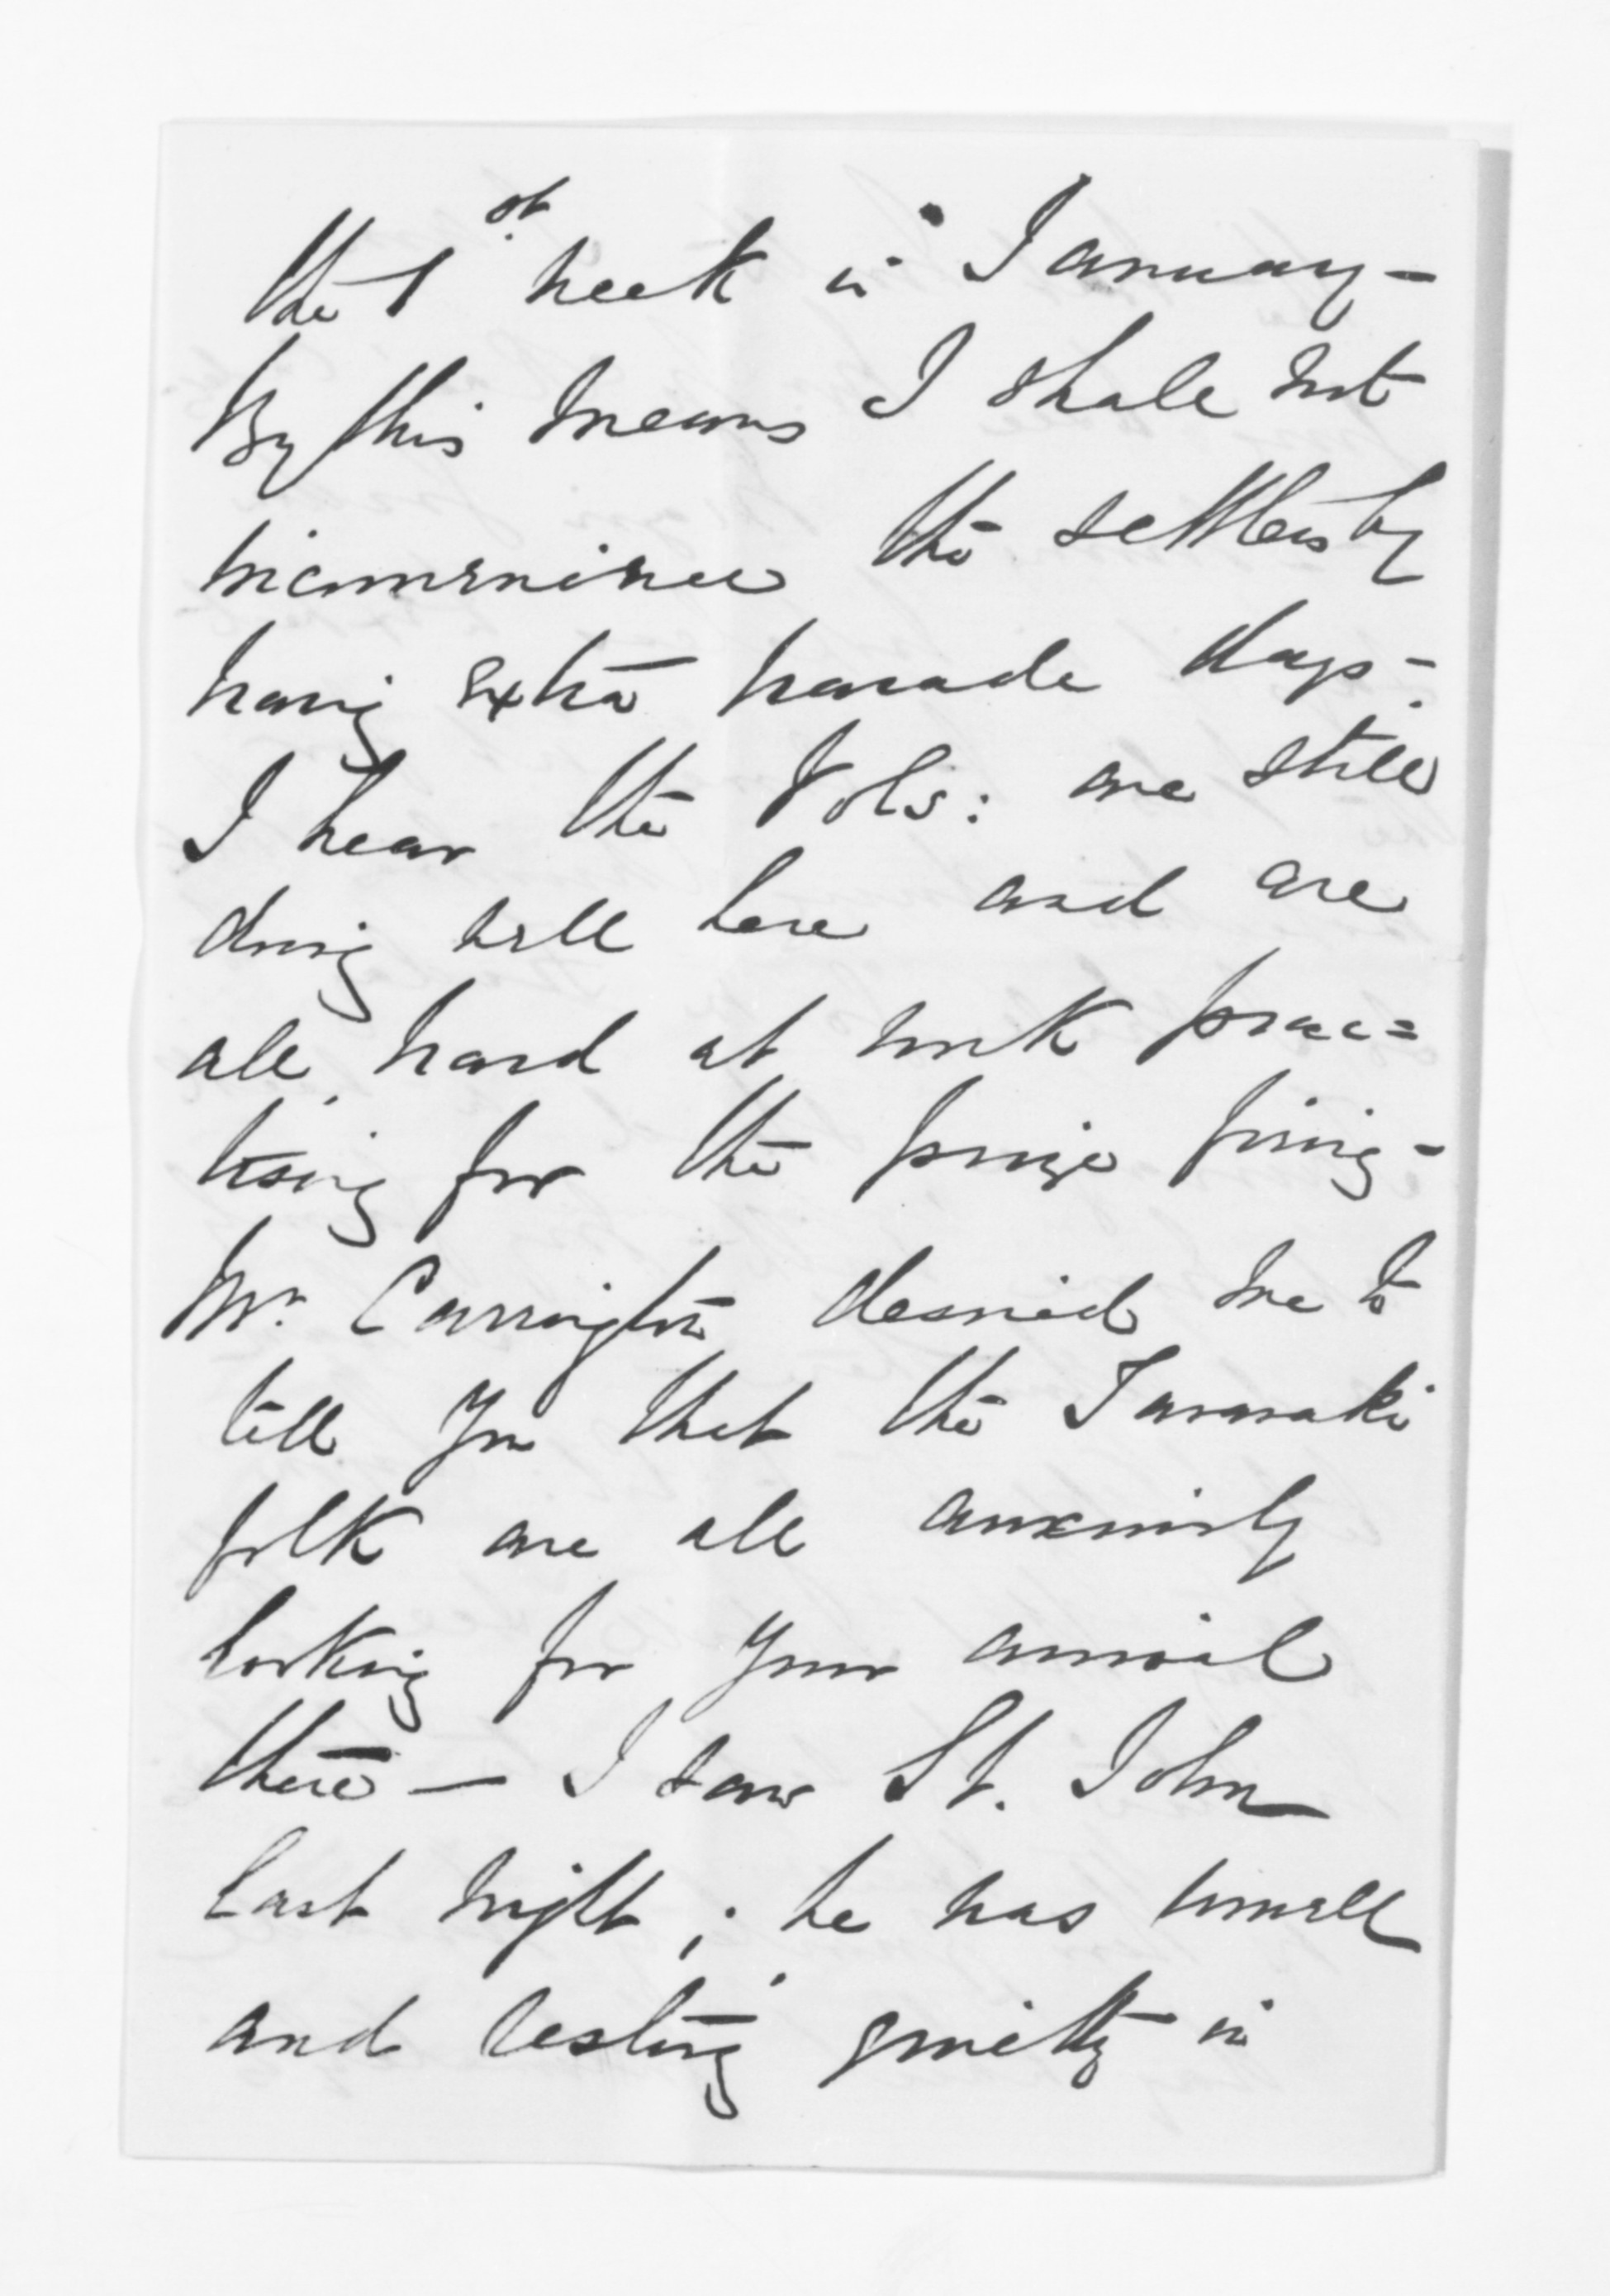 the 1st week in January -
By this means I shall not
inconvenience the settlers by
having extra parade days -
I hear the Vols: are still
doing well here and are
all hard at work prac=
tising for the prize firing -
Mr. Carrington desired me to
tell you that the Taranaki
folk are all anxiously
looking for your arrival
there — I saw St. John
last night; he was unwell
and resting quietly in